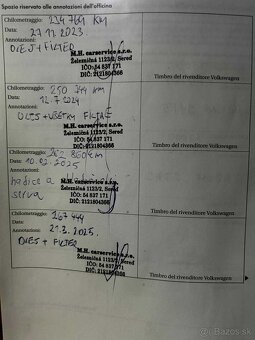 Spazio riservato alle annotazioni dell'officina
Chilometraggio: 234 761 km
Data: 27.11.2023
Annotazioni:
OLEJ + FILTER
M.H. carservice s.r.o.
Železničná 1123/2, Sereď
IČO: 54 837 171
DIČ: 2121804366
Timbro del rivenditore Volkswagen
Chilometraggio: 250 744 km
Data: 12.7.2024
Annotazioni:
OLEJ + VŠETKY FILTRE
M.H. carservice s.r.o.
Železničná 1123/2, Sereď
IČO: 54 837 171
DIČ: 2121804366
Timbro del rivenditore Volkswagen
Chilometraggio: 262 860 km
Data: 10.02.2025
Annotazioni:
hadice a
serva
M.H. carservice s.r.o.
Železničná 1123/2, Sereď
IČO: 54 837 171
DIČ: 2121804366
Timbro del rivenditore Volkswagen
Chilometraggio: 267 444
Data: 21.3.2025
Annotazioni:
OLEJ + FILTER
M.H. carservice s.r.o.
Železničná 1123/2, Sereď
IČO: 54 837 171
DIČ: 2121804366
Timbro del rivenditore Volkswagen
bazos.sk